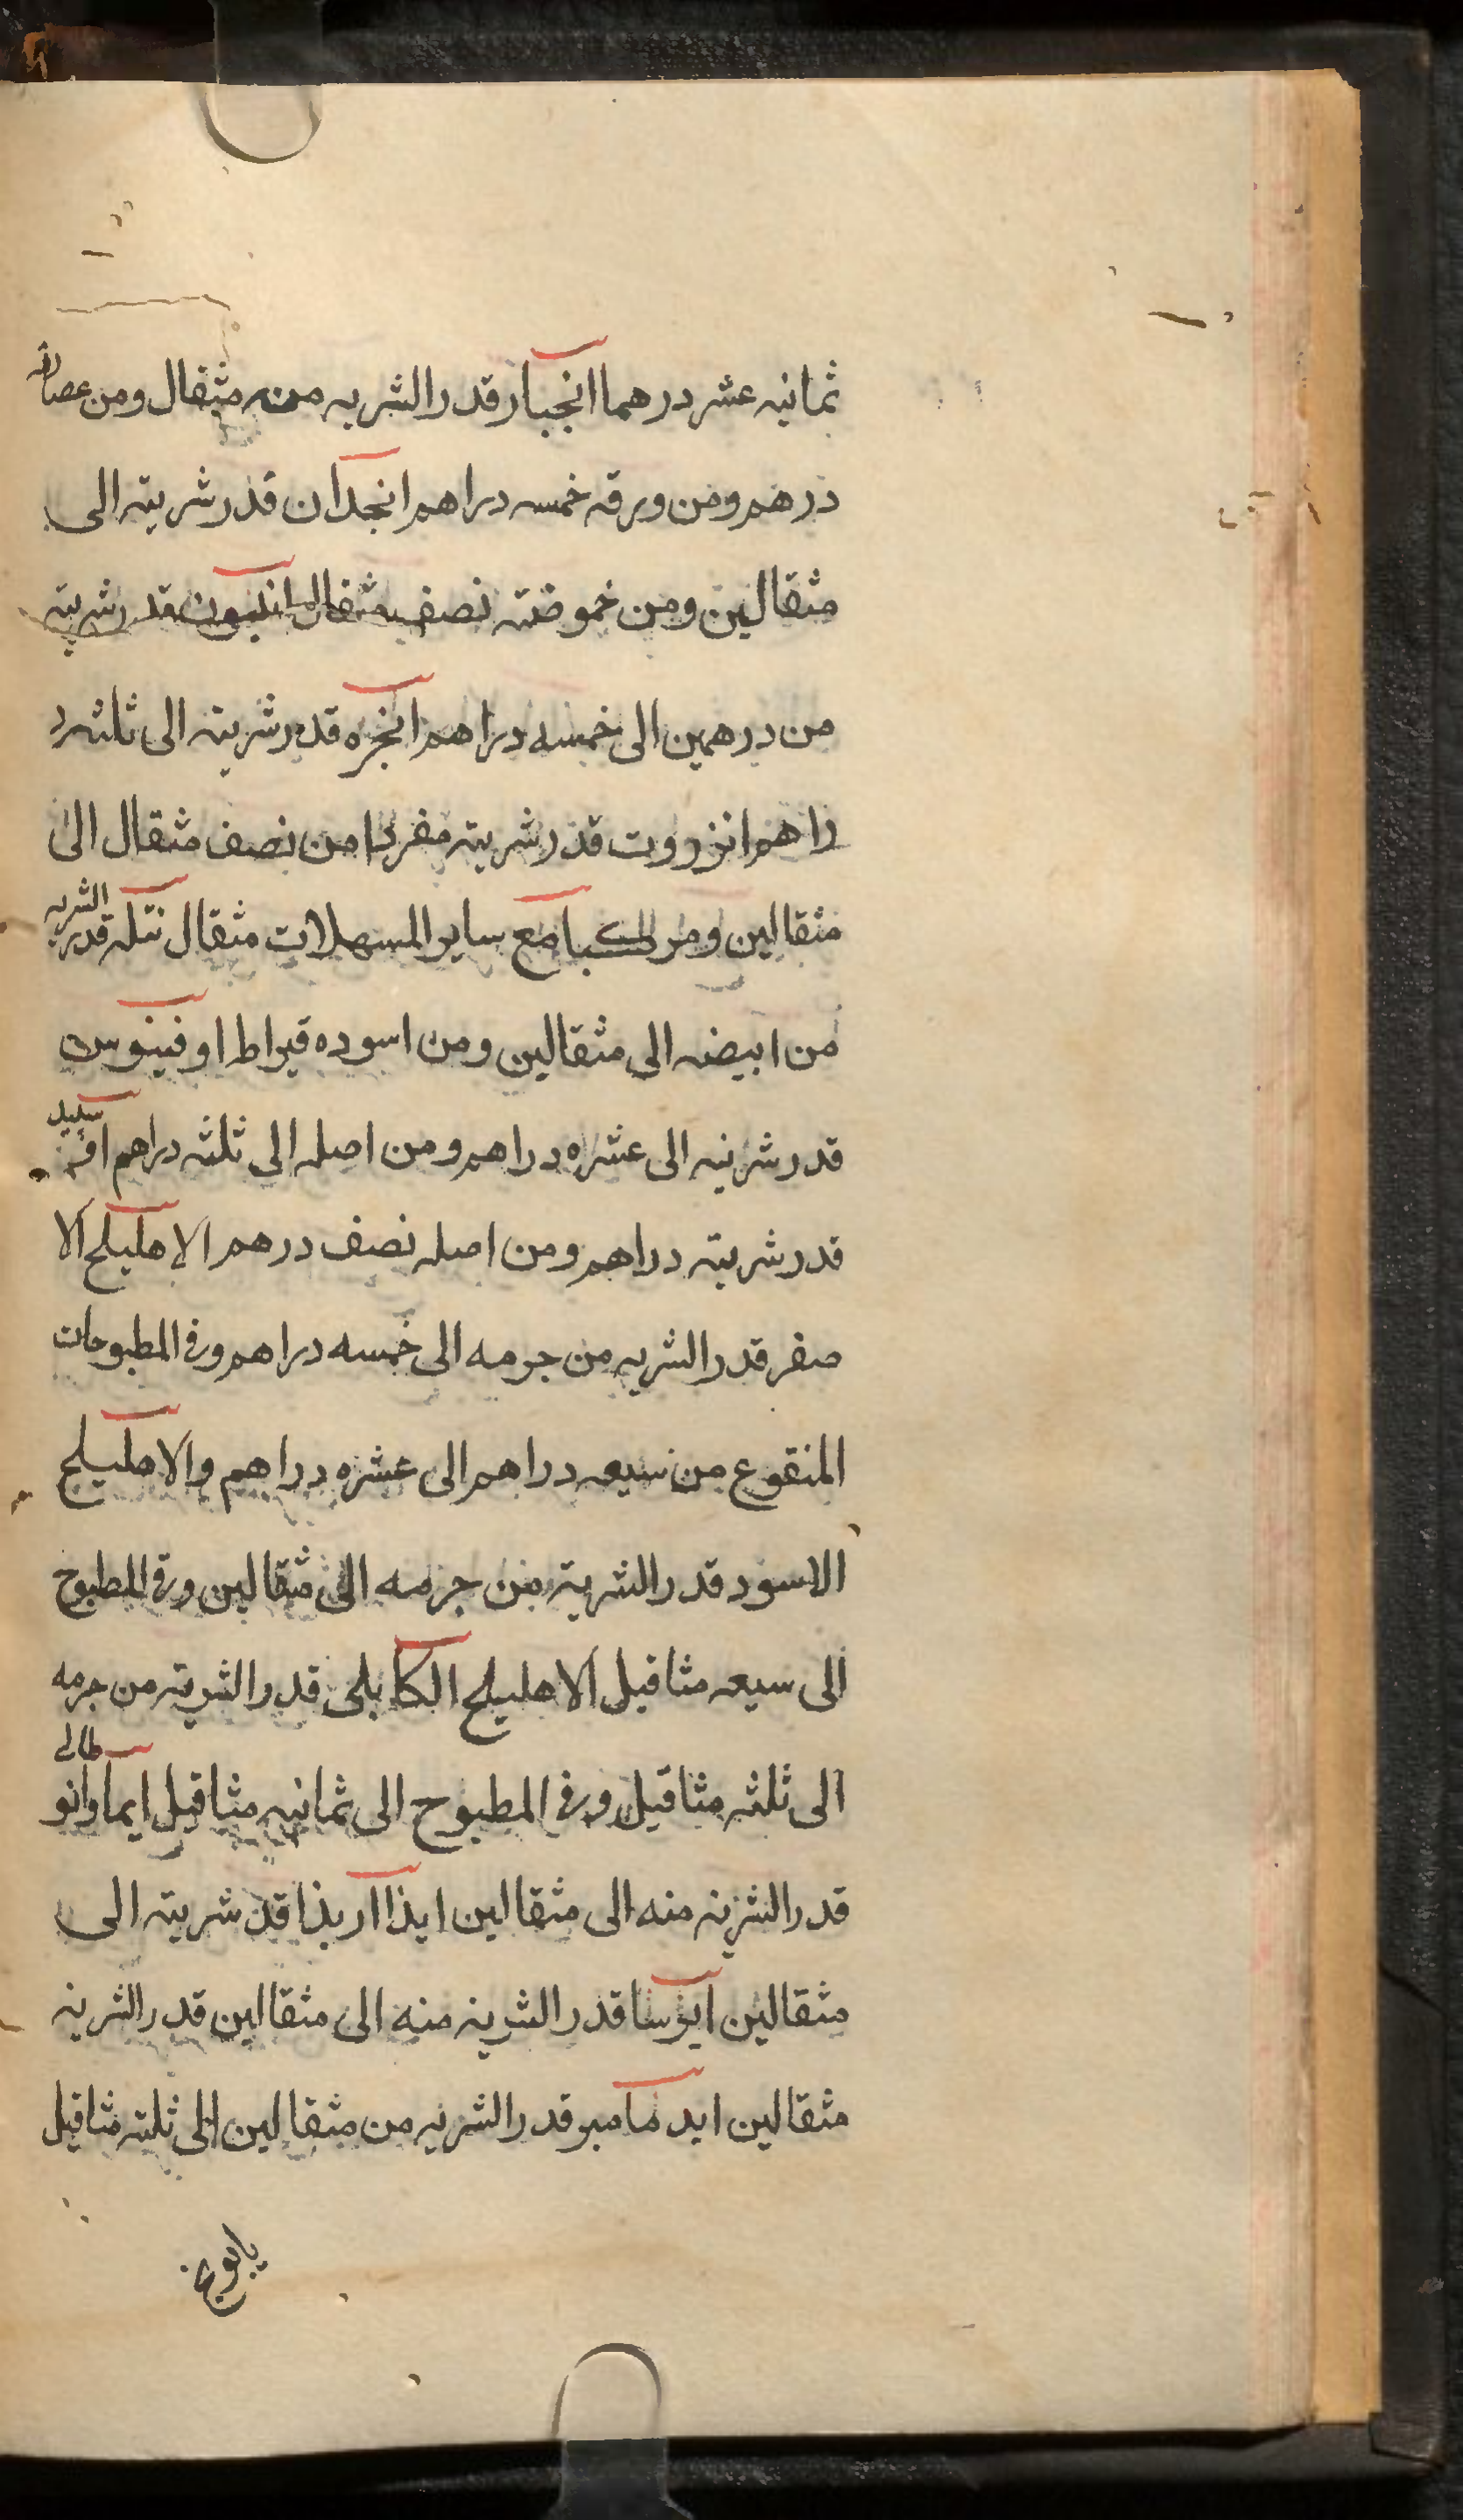 ثمانيه عشر درهما انجبار قدر الشربه منه مثقال ومن عصارته
درهم ومن ورقه خمسه دراهم انجدان قدر شربته الى
مثقالين ومن حموضته نصف مثقال انيسون قدر شربته
من درهمين الى خمسه دراهم انجره قدر شربته الى ثلثه د
راهم انزروت قدر شربته مفردا من نصف مثقال الى
مثقالين ومركبا مع ساير المسهلات مثقال نتله قدر الشربه
من ابيضه الى مثقالين ومن اسوده قيراط اوفينوس
قدر شربته الى عشره دراهم ومن اصله الى ثلثه دراهم
قدر شربته دراهم ومن اصله نصف درهم الاهليلج الا
صفر قدر الشربه من جرمه الى خمسه دراهم وفى المطبوحات
المنقوع من سبعه دراهم الى عشره دراهم والاهليلج
الاسود قدر الشربة من جرمه الى مثقالين وفى المطبوح
الى سبعه مثاقيل الاهليلج الكابلى قدر الشربة من جرمه
الى ثلثه مثاقيل وفى المطبوح الى ثمانيه مثاقيل ايماوانو طالى
قدر الشربه منه الى مثقالين ايذا اربذا قد شربته الى
مثقالين ايرسا قدر الشربه منه الى مثقالين قدر الشربه
مثقالين ايد مامبو قدر الشربه من مثقالين الى ثلثه مثاقيل
بابونج